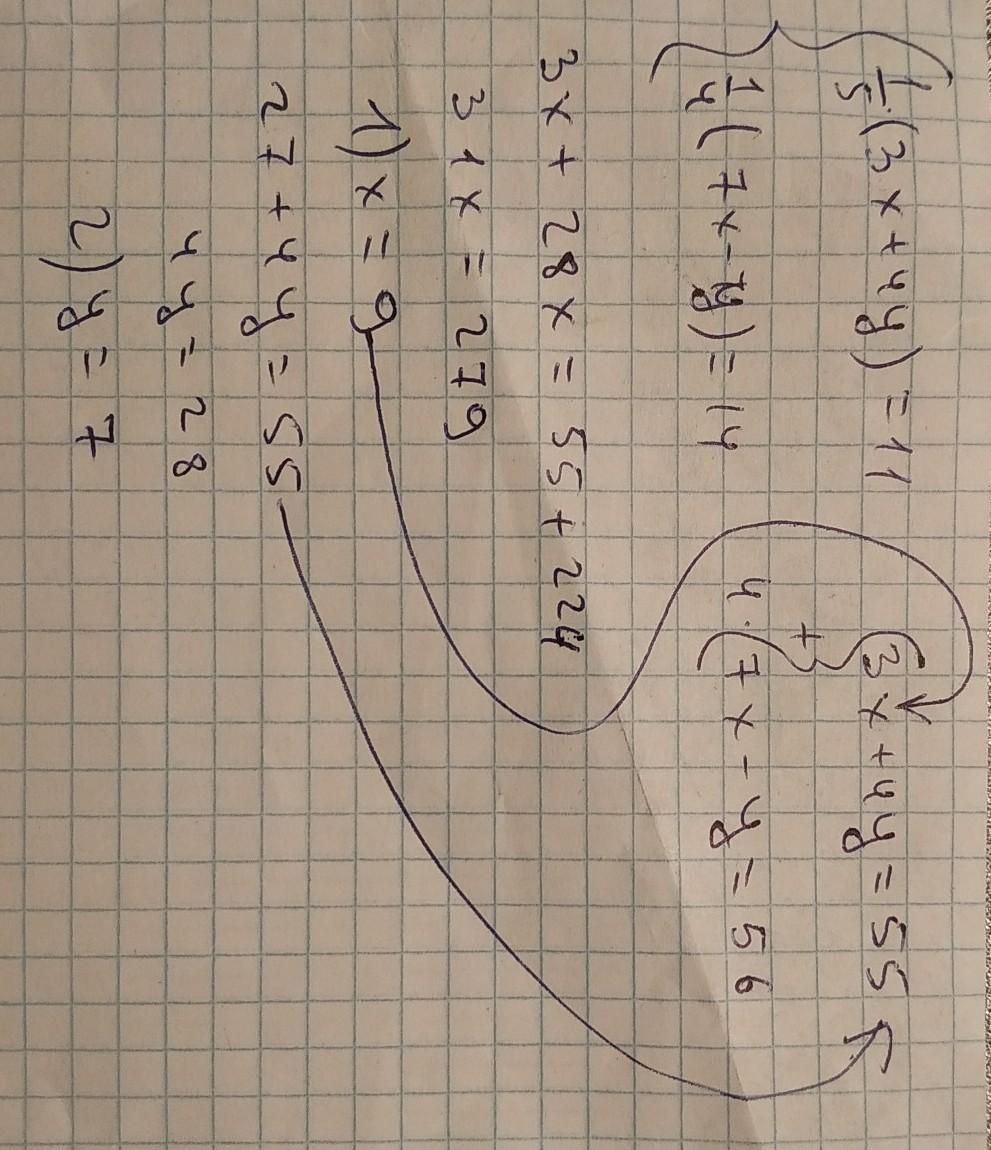 1/5·(3x+4y)=11
3x+4y=55
+
1/4(7x-y)=14
4·(7x-y=56
3x+28x=55+224
31x=279
1)x=9
27+4y=55
4y=28
2)y=7